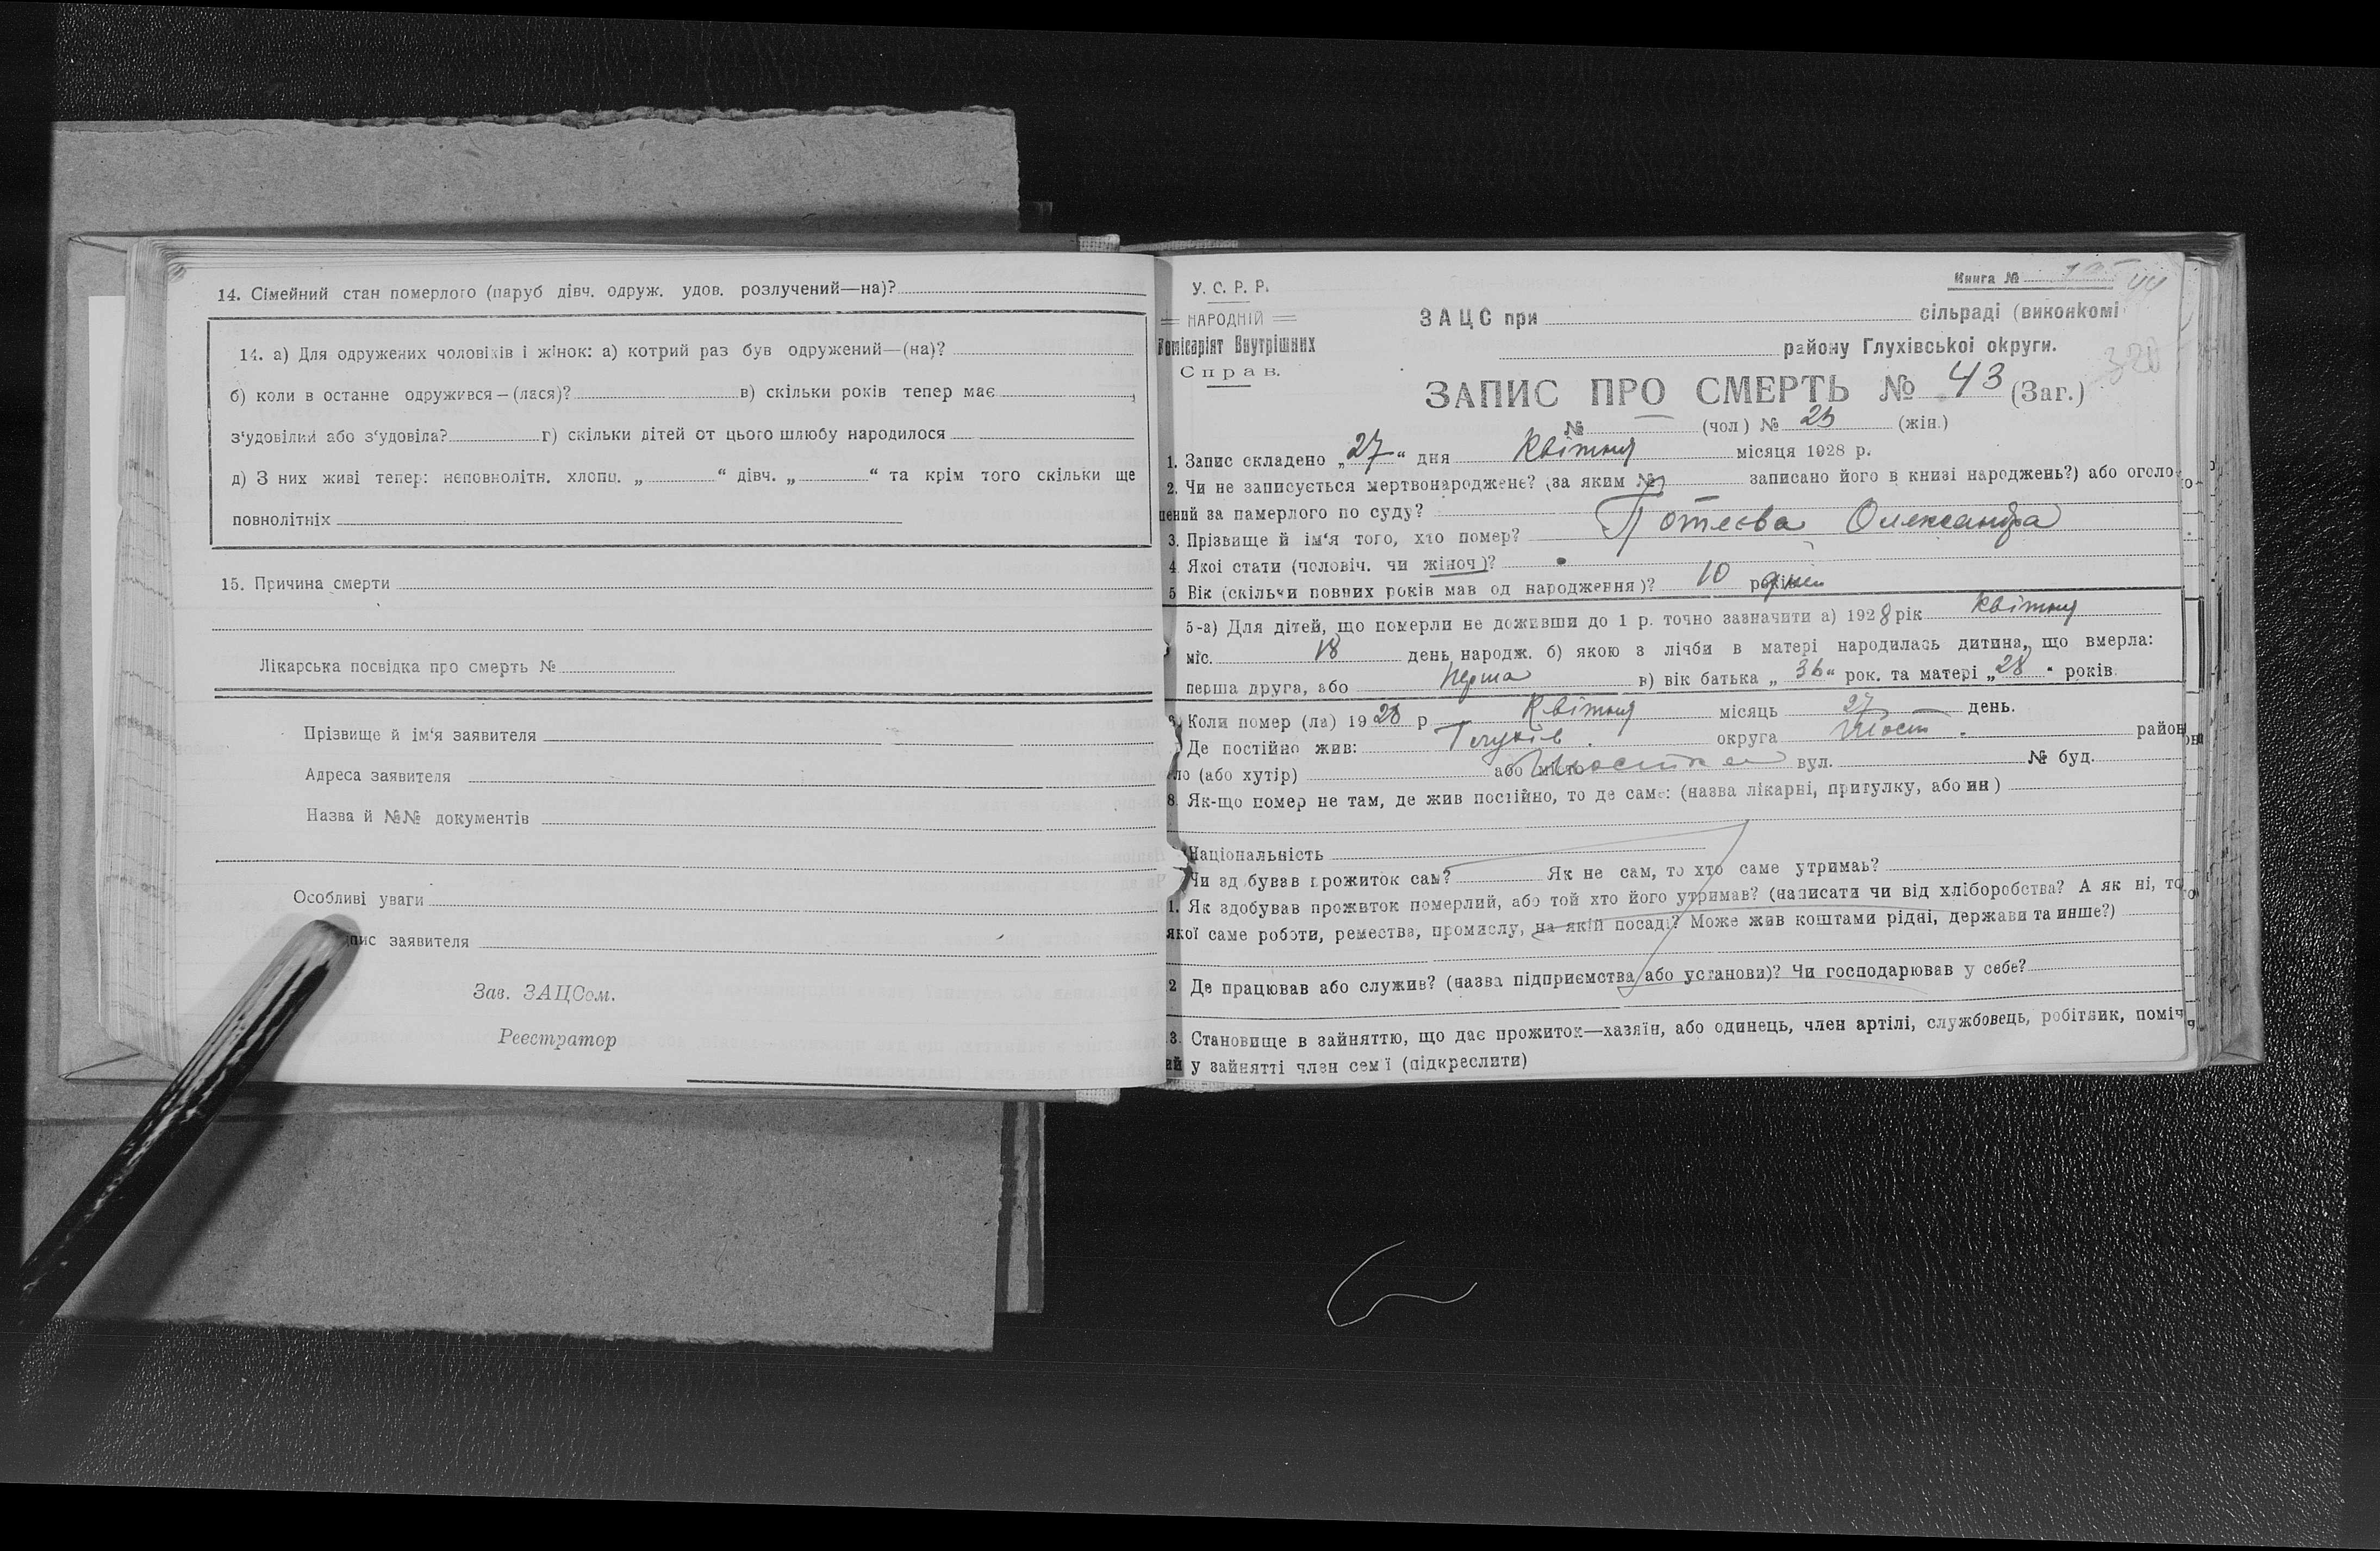 14. Сімейний стан померлого (паруб дівч. одруж. удов. розлучений—на)?
14. а) Для одружених чоловіків і жінок: а) котрий раз був одружений—(на)?
б) коли в останне одружився—(лася)? в) скільки років тепер має ,
з‘удовілий або з‘удовіла? г) скільки дітей от цього шлюбу народилося
д) З них живі тепер: неповнолітн. хлопц. „ “ дівч. „ “ та крім того скільки ще
повнолітніх
15. Причина смерти
Лікарська посвідка про смерть №
Прізвище й ім‘я заявителя
Адреса заявителя
Назва й №№ документів
Особливі уваги
пис заявителя
Зав. ЗАЦСом.
Реєстратор
У. С. Р. Р.
НАРОДНІЙ
Комісаріят Внутрішних
Справ.
Книга №
ЗАЦС при сільраді (виконкомі
району Глухівської округи.
320
ЗАПИС ПРО СМЕРТЬ № 43 (Заг.)
№ (чол) № 25 (жін.)
1. Запис складено „27“ дня Квітня місяця 1928 р.
2. Чи не записується мертвонароджене? (за яким № записано його в книзі народжень?) або оголо-
шений за памерлого по суду?
3. Прізвище й ім‘я того, хто помер? Потеєва Олександра
4. Якої стати (чоловіч. чи жіноч)?
5 Вік (скільки повних років мав од народження)? 10 років днів
5-а) Для дітей, що померли не доживши до 1 р. точно зазначити а) 1928 рік Квітня
міс. 18 день народж. б) якою з лічби в матері народилась дитина, що вмерла:
перша друга, або Перша в) вік батька „36“ рок. та матері „28“ років.
6. Коли помер (ла) 1928 р. Квітня місяць 27 день.
Де постійно жив: Глухів. округа Шост. район
ло (або хутір) або місто Шостка вул. № буд.
8. Як-що помер не там, де жив постійно, то де саме: (назва лікарні, притулку, або ин)
Національність
Чи здобував прожиток сам? Як не сам, то хто саме утримаь?
1. Як здобував прожиток померлий, або той хто його утримав? (написати чи від хліборобства? А як ні, то
якої саме роботи, ремества, промислу, на якій посаді? Може жив коштами рідні, держави та инше?)
2 Де працював або служив? (назва підприємства або установи)? Чи господарював у себе?
3. Становище в зайняттю, що дає прожиток—хазяїн, або одинець, член артілі, службовець, робітник, поміч
ий у зайнятті член сем‘ї (підкреслити)